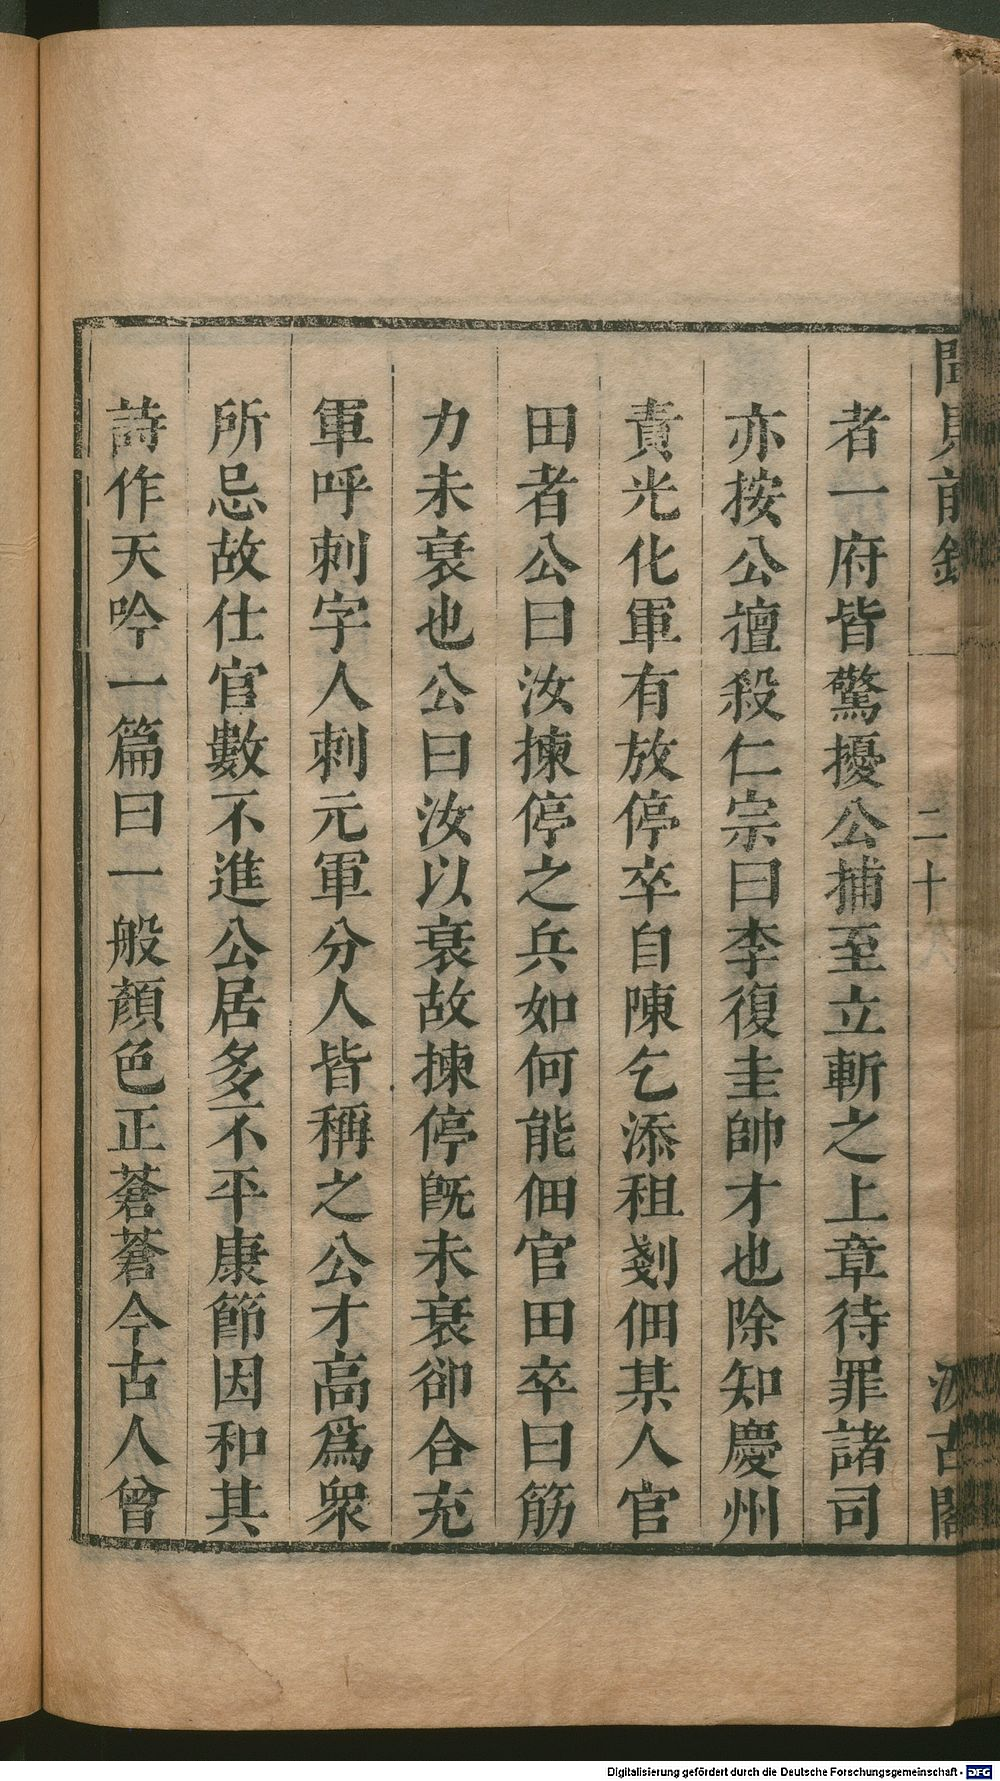 聞見前錄
二十八
汲古閣
者一府皆驚擾公捕至立斬之上章待罪諸司
亦按公擅殺仁宗曰李復圭帥才也除知慶州
責光化軍有放停卒自陳乞添租剗佃某人官
田者公曰汝揀停之兵如何能佃官田卒曰筋
力未衰也公曰汝以衰故揀停旣未衰卻合充
軍呼刺字人刺元軍分人皆稱之公才高爲衆
所忌故仕官數不進公居多不平康節因和其
詩作天吟一篇曰一般顏色正蒼蒼今古人曾
Digitalisierung gefördert durch die Deutsche Forschungsgemeinschaft - DFG